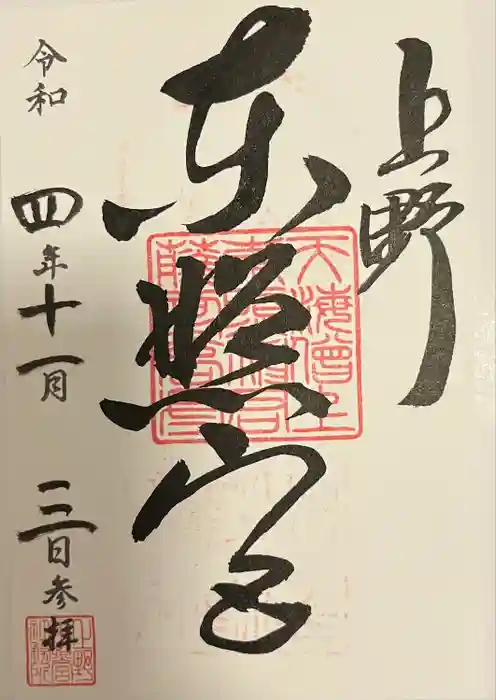 上野
東照宮
天海僧正
令和
四年十一月
三日参拝